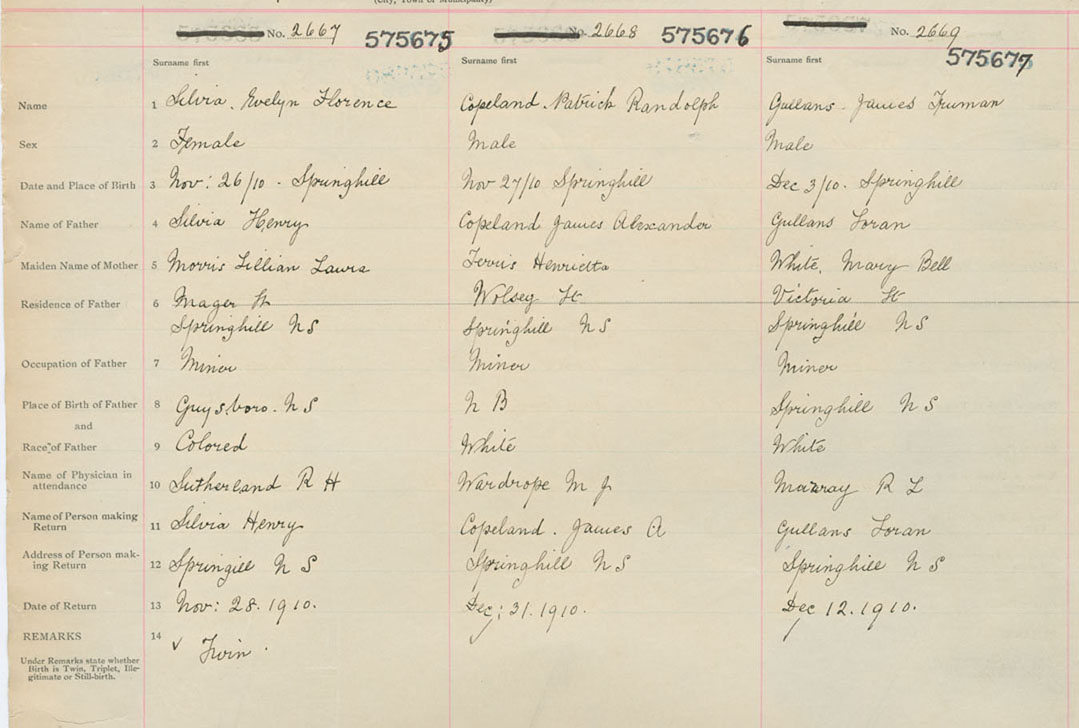 (City, Town or Municipality)
No. 2667 575675 No. 2668 575676 No. 2669 575677
Surname first Surname first Surname first
Name 1 Silvia. Evelyn Florence Copeland. Patrick Randolph Gullans. James Truman
Sex 2 Female Male Male
Date and Place of Birth 3 Nov: 26/10 - Springhill Nov 27/10 Springhill Dec 3/10. Springhill
Name of Father 4 Silvia Henry Copeland James Alexander Gullans Loran
Maiden Name of Mother 5 Morris Lillian Laura Henrietta White, Mary Bell
Residence of Father 6 Mager St Wolsey St Victoria St
Springhill N S Springhill N S Springhill N S
Occupation of Father 7 Miner Miner Miner
Place of Birth of Father 8 Guysboro. N S N B Springhill N S
and
Race of Father 9 Colored White White
Name of Physician in attendance 10 Sutherland R H Wardrope M J Murray R L
Name of Person making Return 11 Silvia Henry Copeland. James A Gullans Loran
Address of Person making Return 12 Springill N S Springhill N S Springhill N S
Date of Return 13 Nov: 28. 1910. Dec: 31. 1910. Dec 12. 1910.
REMARKS 14 ✓ Twin.
Under Remarks state whether
Birth is Twin, Triplet, Ille-
gitimate or Still-birth.